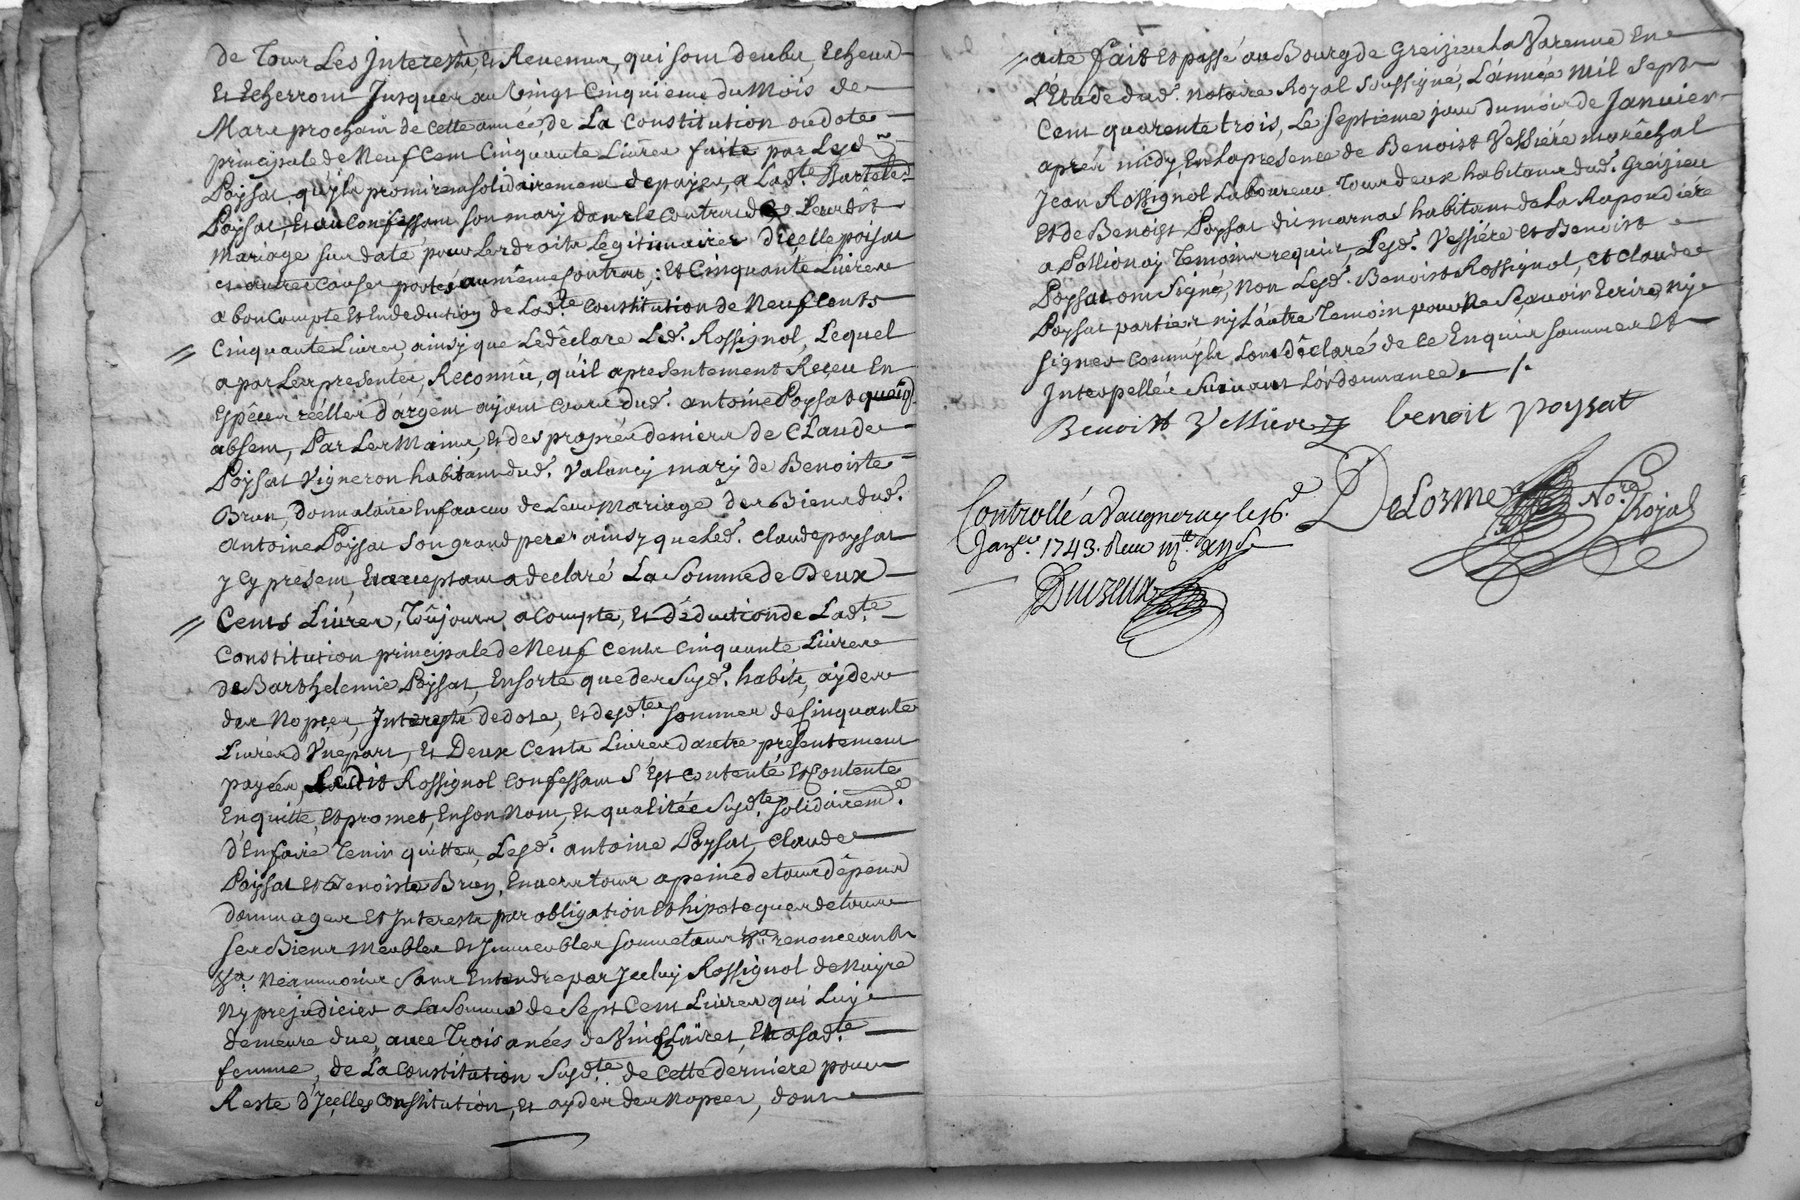 de Tous Les Interests, et Revenus, qui sont deubs, Echeus
Et Echerront Jusques au Vingt Cinquieme du Mois de
Mars prochain de cette année, de La Constitution oü dote
principale de Neuf Cent Cinquante Livres faite par Lesd
Poÿsat, qu'ils promirent solidairement de payer, a Lad.te Bartele
Poÿsat, Et au Confessant son mary dans le contract de Leurdit
Mariage sus daté pour Les droits Legitimaires D'icelle poÿsat
et autres causes portés au même Contrat; Et Cinquante Livres
a bon Compte Et En deduction de Lad.te Constitution de Neuf Cents
Cinquante Livres, ainsy que Le déclare Led. Rossignol, Lequel
a par Les presentes, Reconnû, qu'il a presentement Reçeu En
Espêces réélles d'argent aÿant cours dud. antoine Poÿsat
absent, Par Les Mains, Et des propres deniers de Claude
Poÿsat Vigneron habitant dud. Valancy mary de Benoiste
Brun, donnataire En faveur de Leur Mariage des Biens dud.
antoine Poÿsat son grand pere, ainsy que Led. Claude poÿsat
y Cy present, Et acceptant a declaré La Somme de Deux
Cents Livres, Toûjours a Compte, Et Déduction de Lad.te
Constitution principale de Neuf Cents Cinquante Livres
de Barthelemie Poÿsat, En sorte que des Susd. habits, aydes
des Nopçes, Interests de dote, Et desd.tes sommes de Cinquante
Livres d'Une part, Et Deux Cents Livres d'autre presentement
payées, Ledit Rossignol Confessant S'Est contenté Et Contente
En quitte, Et promet, En son Nom, Et qualitée Susd.te solidairem.t
d'En faire Tenir quittes, Lesd. antoine Poÿsat, Claude
Poÿsat Et Benoiste Brun, Envers tous a peine de tous dêpens
dommages Et Interests par obligation Et hipoteques de tous
ses Biens Meubles Et Immeubles Soumettant &a. renonceant
&a. Neammoins Sans Entendre par Jceluy Rossignol de Nuire
Ny prejudicier a La Somme de Sept Cent Livres qui Luy
demeure due, avec Trois anées de Vingt Livres, Et a sad.te
femme, de La Constitution Susd.te de Cette derniere pour
Reste d'Jçelles Constitution, Et aydes des Nopces, dont
acte fait Et passé au Bourg de Greizieu La Varenne En
L'Etude dud. Notaire Royal Soussigné, L'année Mil Sept
Cent quarente trois, Le Septieme jour du mois de Janvier
aprés midy, En La presence de Benoist Vessiére marêchal
Jean Rossignol Laboureur Tous deux habitans dud. Greizieu
Et de Benoist Poysat dit marnas habitant de La Rapondiére
a Pollionay Temoins requis, Lesd. Vessiére Et Benoist
Poysat ont Signé, Non Lesd. Benoist Rossignol, Et Claude
Poysat parties ny L'autre Temoin pour Ne Sçavoir Ecrire, ny
signer comm'ils L'ont dêclaré de ce Enquis sommes Et
Interpellés Suivant L'ordonnance ./.
Benoist Vessiere benoit poysat
DeLorme No.re Royal
Controllé a Vaugneray le 16.e
Janv.er 1743. Receu
Duzeux